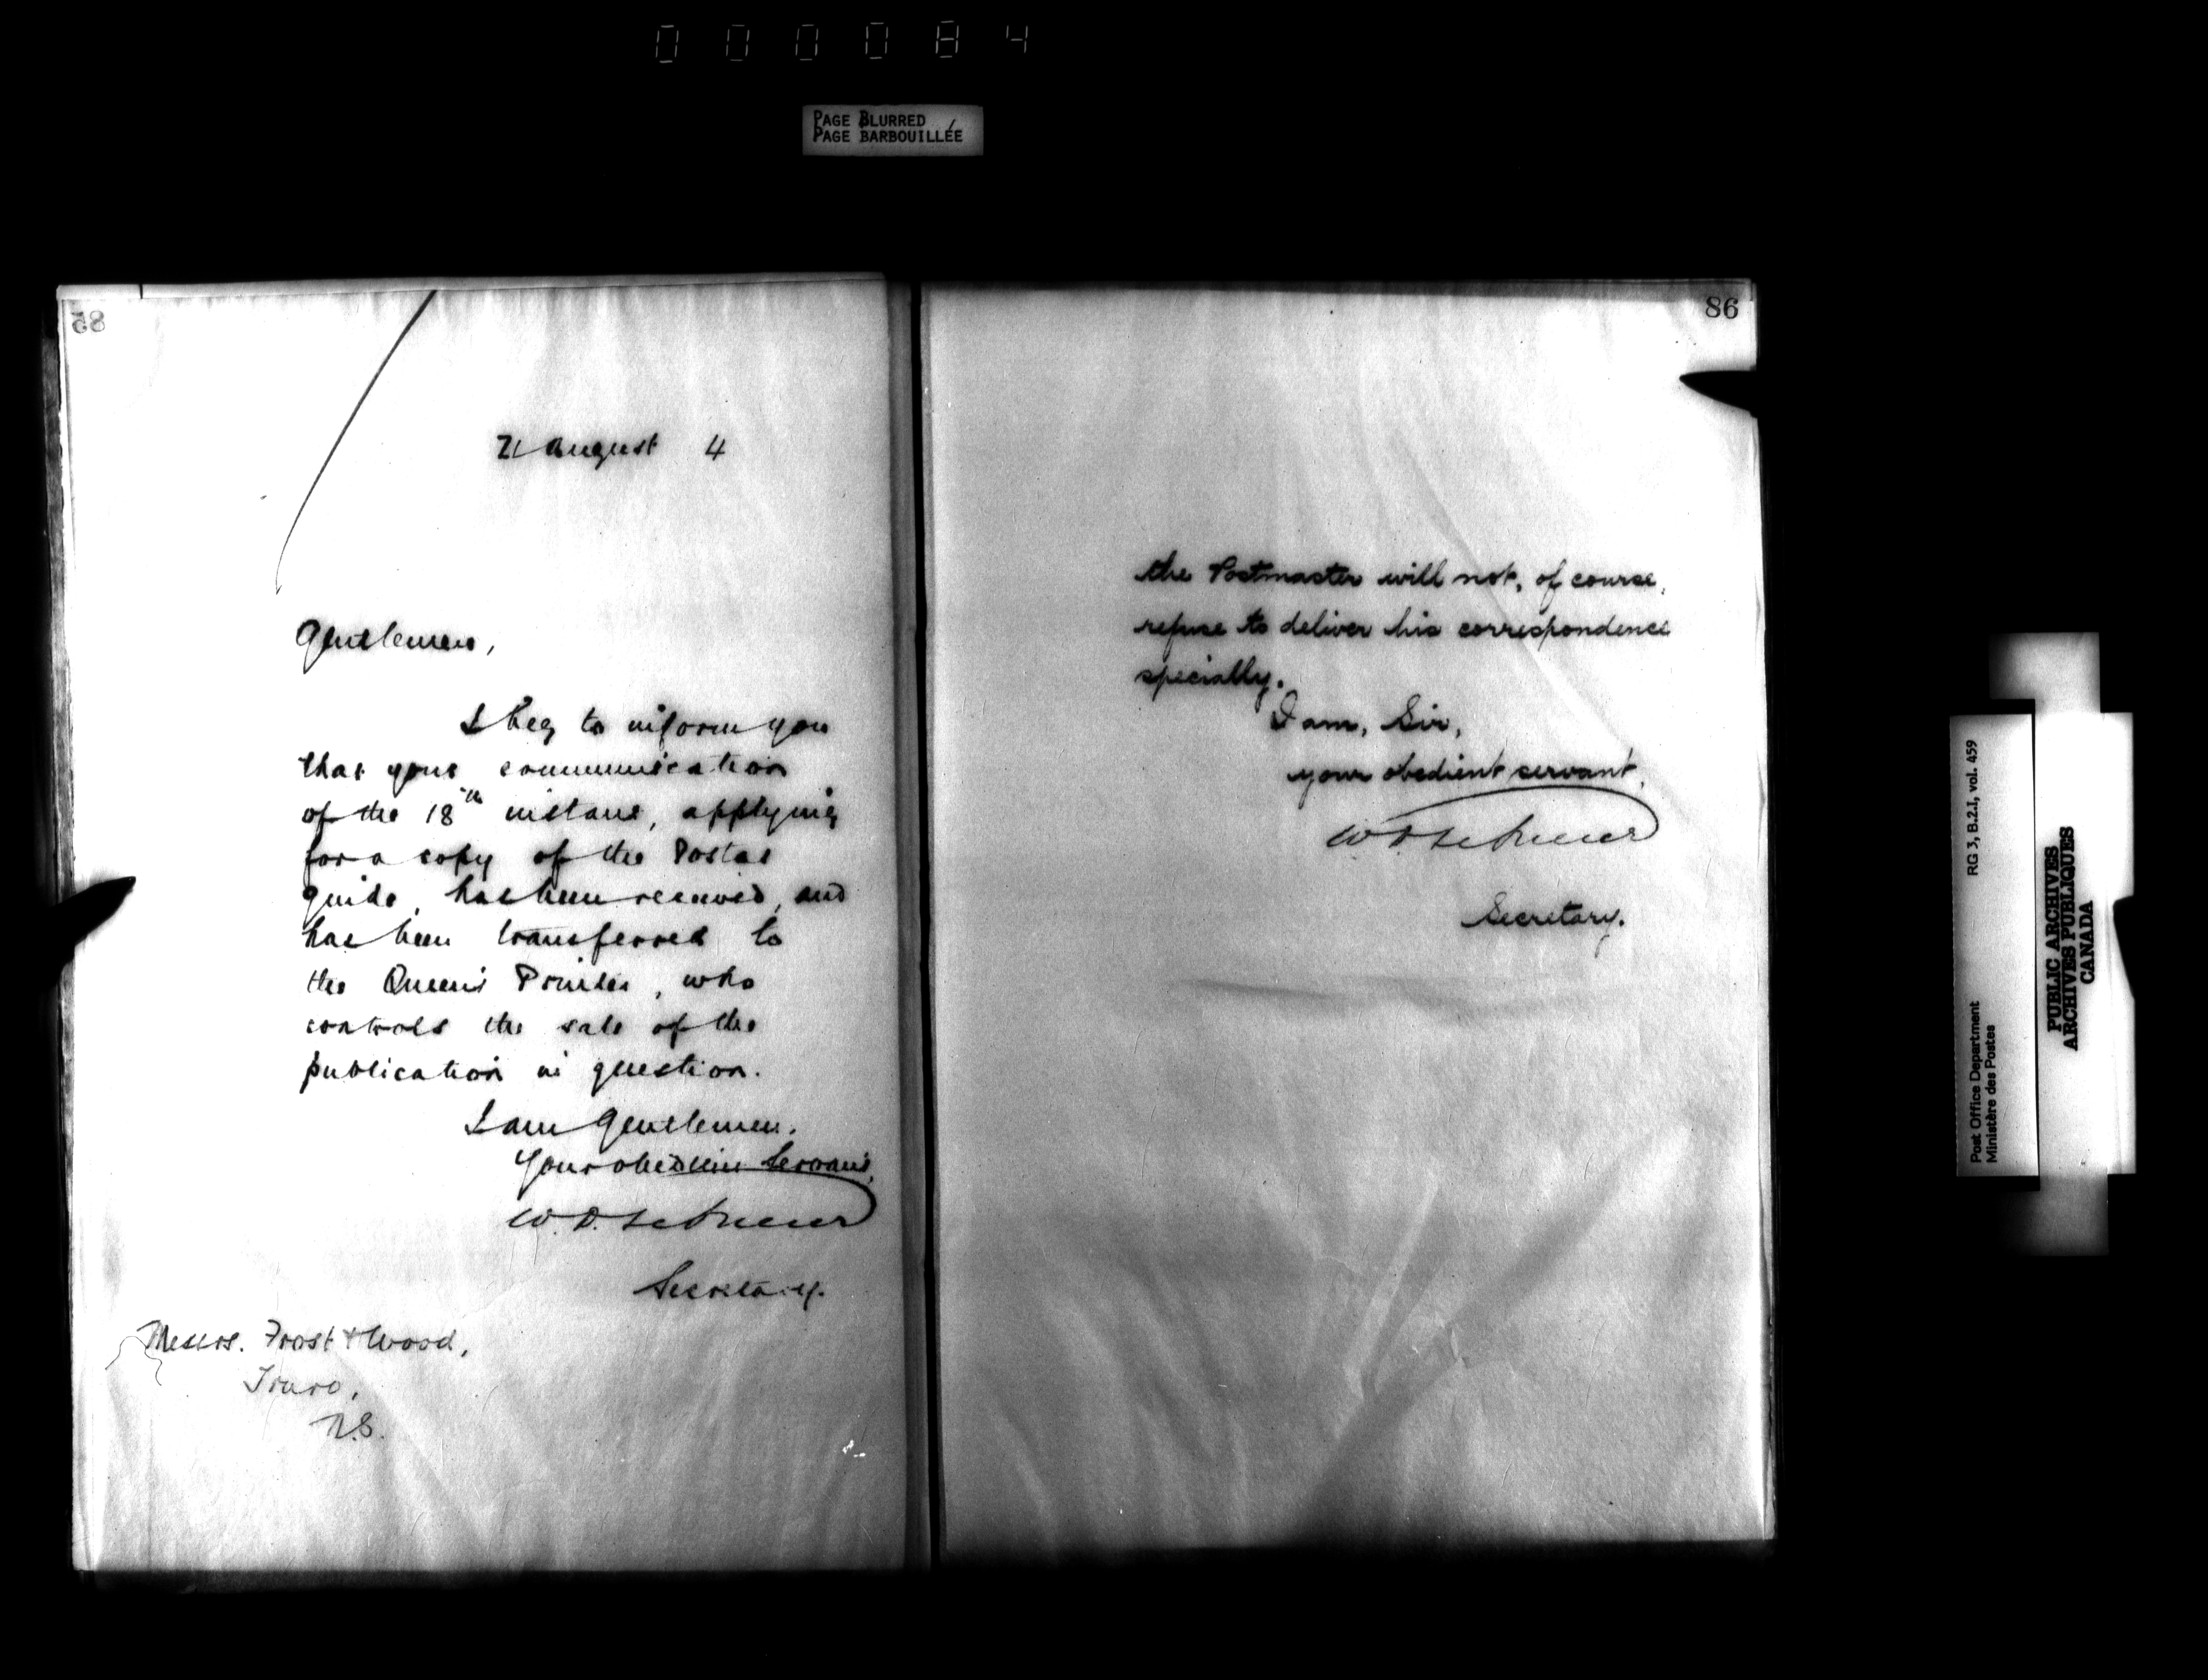 000084
PAGE BLURRED
PAGE BARBOUILLÉE
85
21 August 4
Gentlemen,
I beg to inform you
that your communication
of the 18th instant, applying
for a copy of the Postal
guide, has been received, and
has been transferred to
the Queen's Printer, who
controls the sale of the
publication in question.
I am Gentlemen.
Your obedient Servant,
W. D. LeSueur
Secretary.
Messrs. Frost & Wood,
Truro,
N.S.
86
the Postmaster will not, of course,
refuse to deliver his correspondence
specially.
I am, Sir,
your obedient servant,
W D LeSueur
Secretary.
RG 3, B.2.I, vol. 459
Post Office Department
Ministère des Postes
PUBLIC ARCHIVES
ARCHIVES PUBLIQUES
CANADA